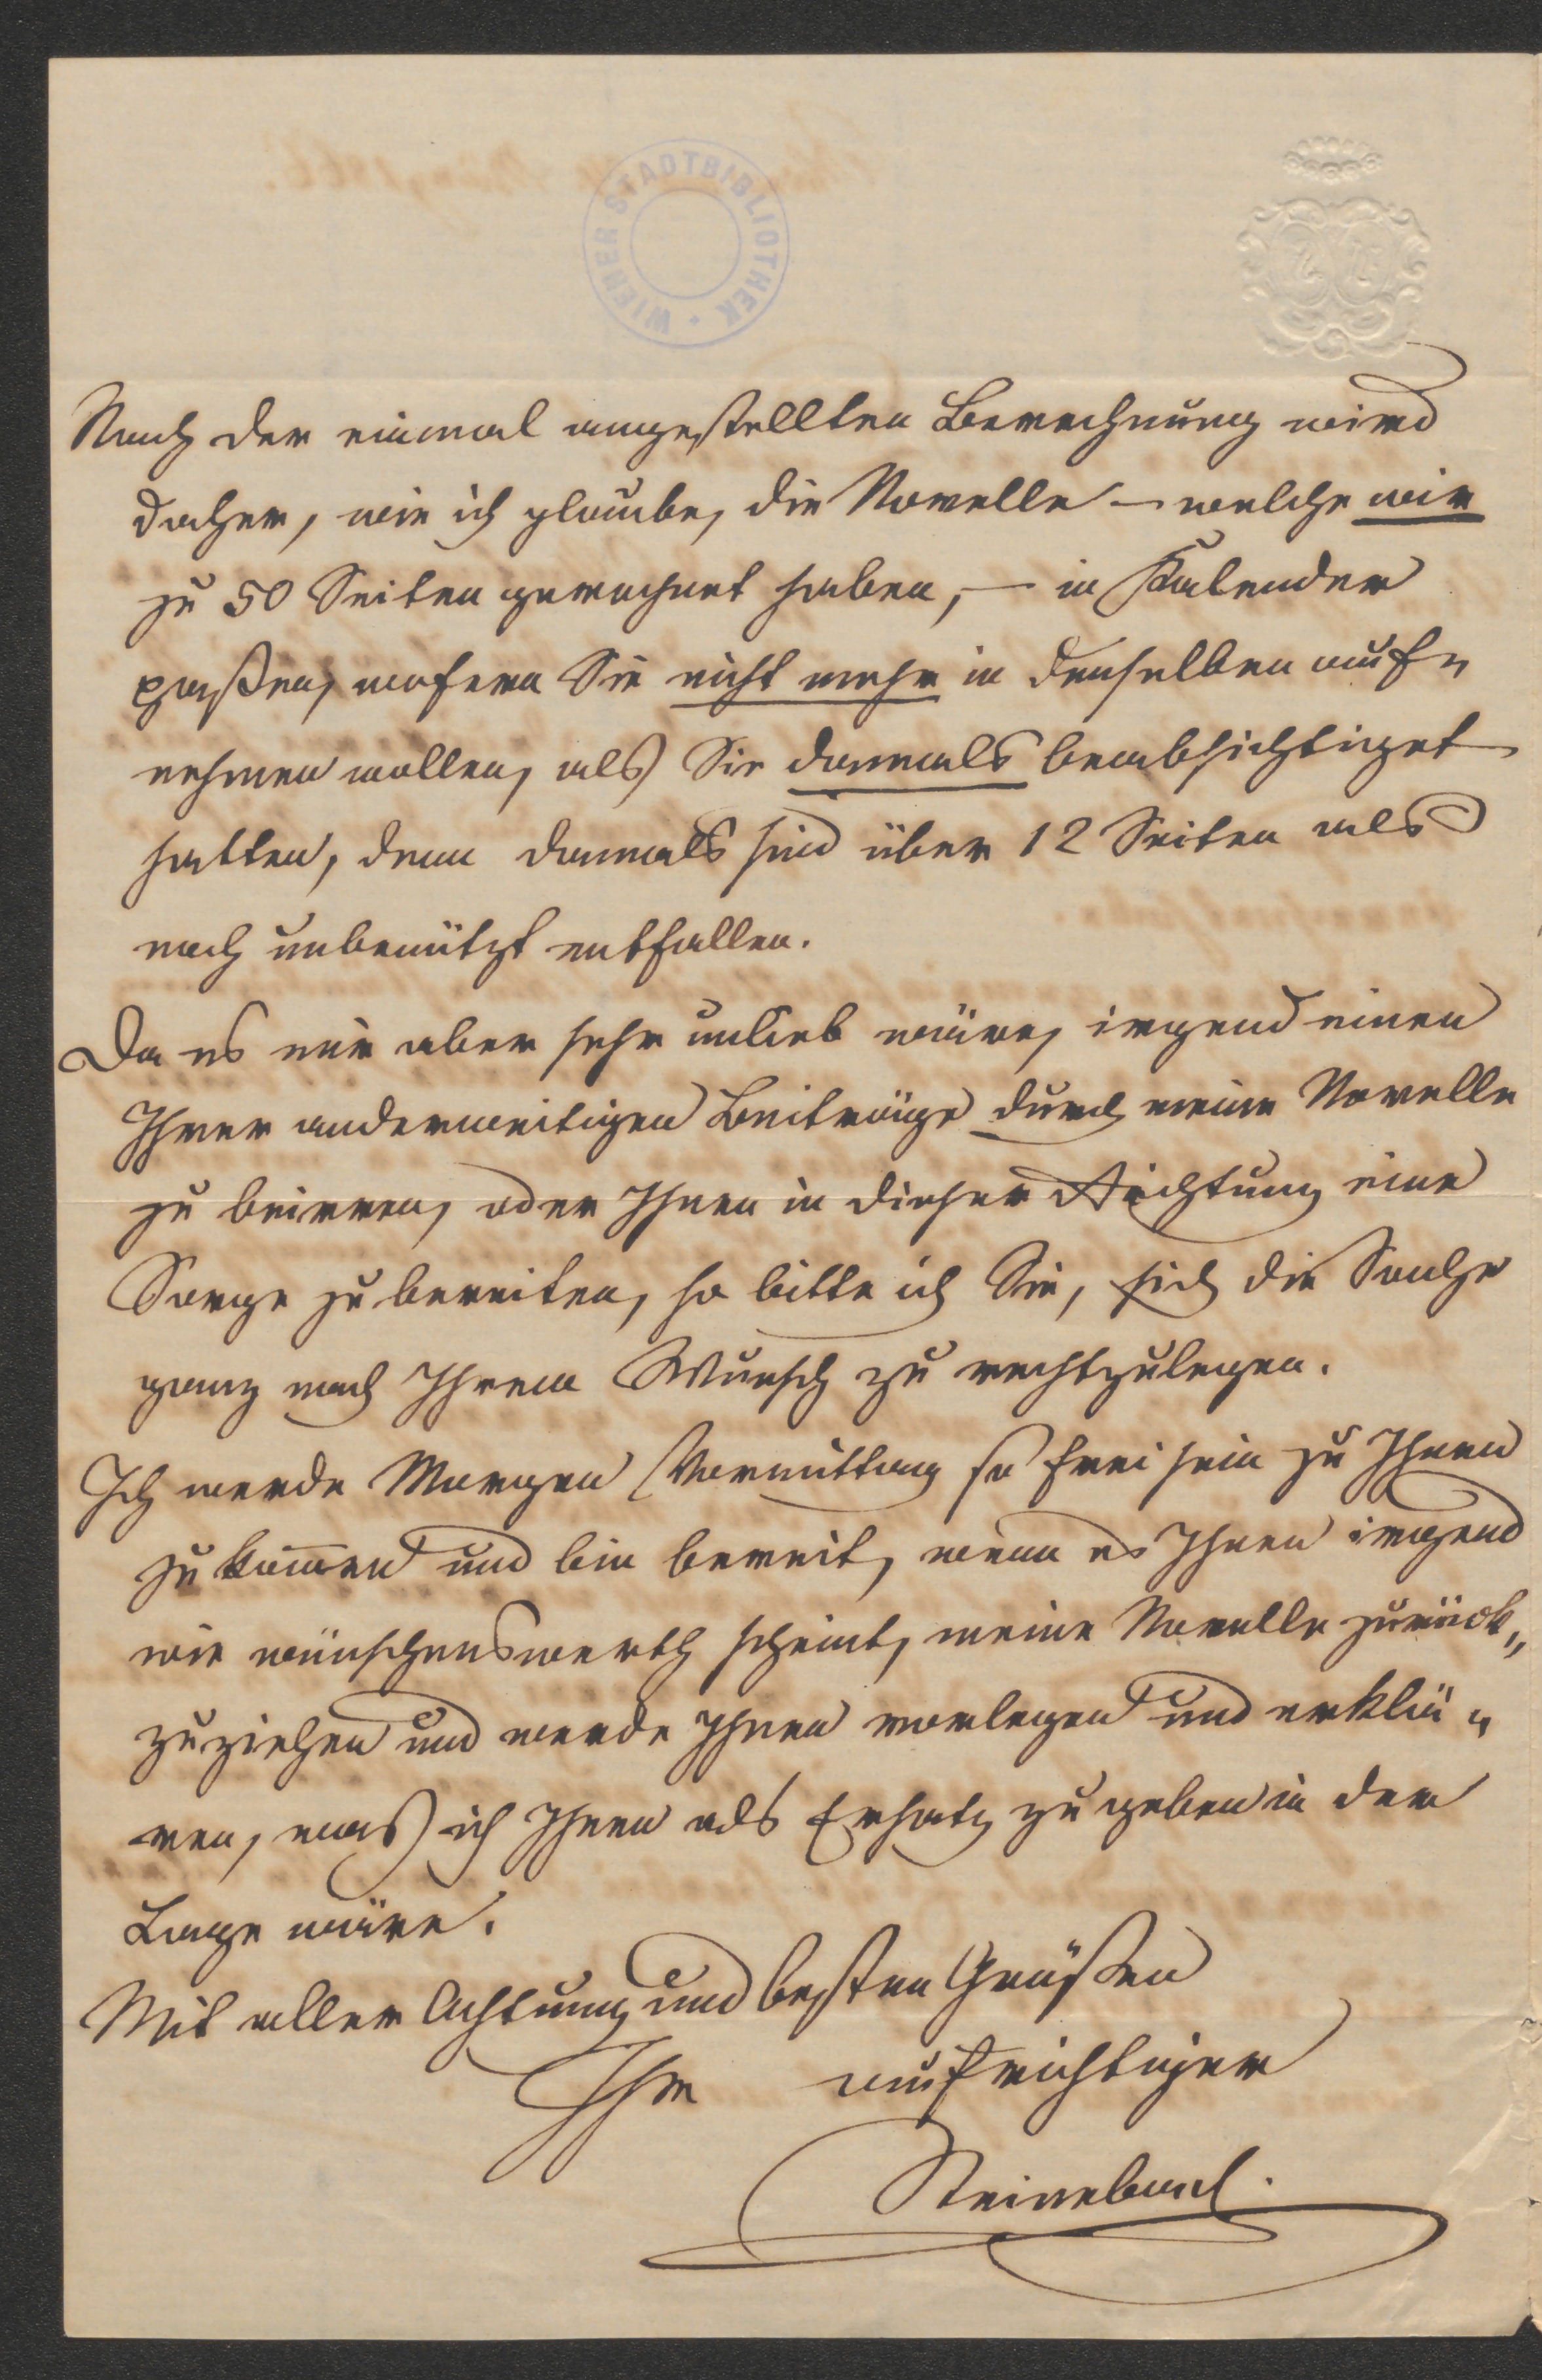 WIENER STADTBIBLIOTHEK
Nach der einmal angestellten Berechnung wird
daher, wie ich glaube, die Novelle – welche wir
zu 50 Seiten gerechnet haben, – in Kalender
paßen, wofern Sie nicht mehr in denselben auf-
nehmen wollen, als Sie damals beabsichtiget
hatten, denn damals sind über 12 Seiten als
noch unbenützt entfallen.
Da es mir aber sehr unlieb wäre, irgend einen
Ihrer anderweitigen Beiträge durch meine Novelle
zu beirren, oder Ihnen in dieser Richtung eine
Sorge zu bereiten, so bitte ich Sie, sich die Sache
ganz nach Ihrem Wunsch zu rechtzulegen.
Ich werde Morgen Vormittag so frei sein zu Ihnen
zu kom̅en und bin bereit, wenn es Ihnen irgend
wie wünschenswerth scheint, meine Novelle zurück„
zuziehen und werde Ihnen vorlegen und erklä„
ren, was ich Ihnen als Ersatz zu geben in der
Lage wäre.
Mit aller Achtung und besten Grüßen
Ihr aufrichtiger
Steinebach.